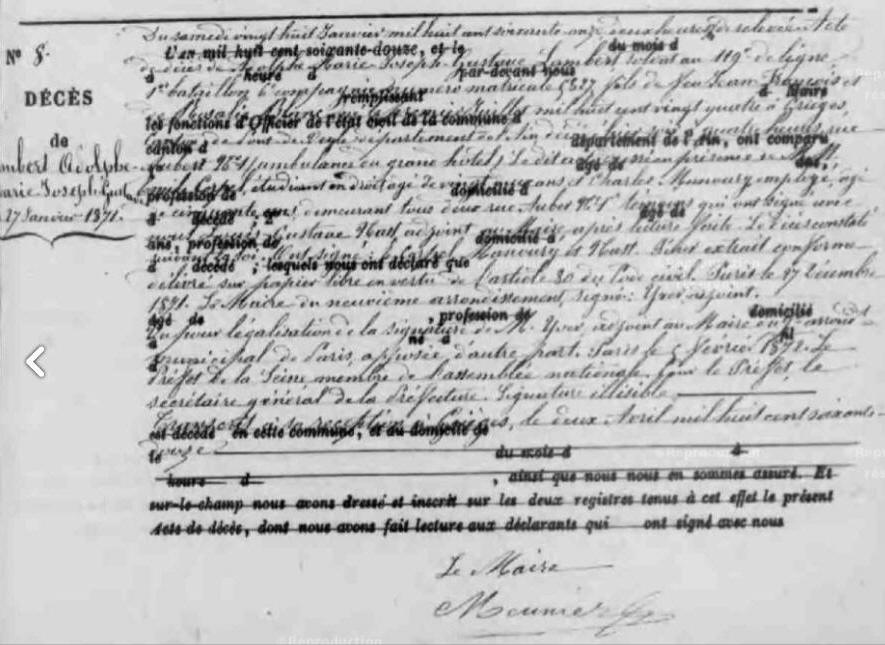 Nº 8.
DÉCÈS
de
Lambert Adolphe-
Marie Joseph-Gust
27 Janvier 1871.
Du samedi vingt huit Janvier mil huit cent soixante onze, deux heures de relevée. Acte
L'an mil huit cent soixante-douze, et le du mois d
de décès de Adolphe-Marie-Joseph-Gustave Lambert soldat au 119e de ligne
à heure d par-devant nous
1er bataillon 6e compagnie numéro matricule fils de feu Jean-François et
remplissant d Maire
mil huit cent vingt quatre à Grièges
les fonctions d'Officier de l'état civil de la commune d
département de l'Ain
canton d département de l'Ain, ont comparu
Auber Nº 1 (ambulance du grand hôtel) Le dit
âgé de ans,
étudiant en droit âgé de ans et Charles Manoury employé, âgé
profession de domicilié à
de cinquante ans demeurant tous deux rue Auber Nº 1 témoins qui ont signé avec
d décédé âgé de
nous Gustave Nast adjoint au Maire après lecture faite. Le décès constaté
ans, profession de domicilié à
suivant la loi. signé Manoury et Nast. Pour extrait conforme
d décédé ; lesquels nous ont déclaré que
délivré sur papier libre en vertu de l'article 80 du Code civil. Paris le 27 décembre
1871. Le Maire du neuvième arrondissement signé: Yver adjoint.
âgé de , profession de domicilié
Vu pour légalisation de la signature de M. Yver, adjoint au Maire du 9e arrondt
à né à fil
municipal de Paris, apposée d'autre part. Paris le 5 février 1872. Le
d
Préfet de la Seine membre de l'assemblée nationale. Pour le Préfet, le
secrétaire général de la Préfecture. Signature illisible.
Transcrit à sa réception à Grièges, le deux Avril mil huit cent soixante-
est décédé en cette commune, et au domicile de
douze
le du mois d à
heure d , ainsi que nous nous en sommes assuré. Et
sur-le-champ nous avons dressé et inscrit sur les deux registres tenus à cet effet le présent
Acte de décès, dont nous avons fait lecture aux déclarants qui ont signé avec nous
Le Maire
Meunier
©Reproduction